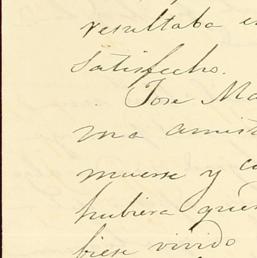 resultaba e
satisfecho.
Jose Ma
ma amist
muerse y c
hubiera quer
biese vivido